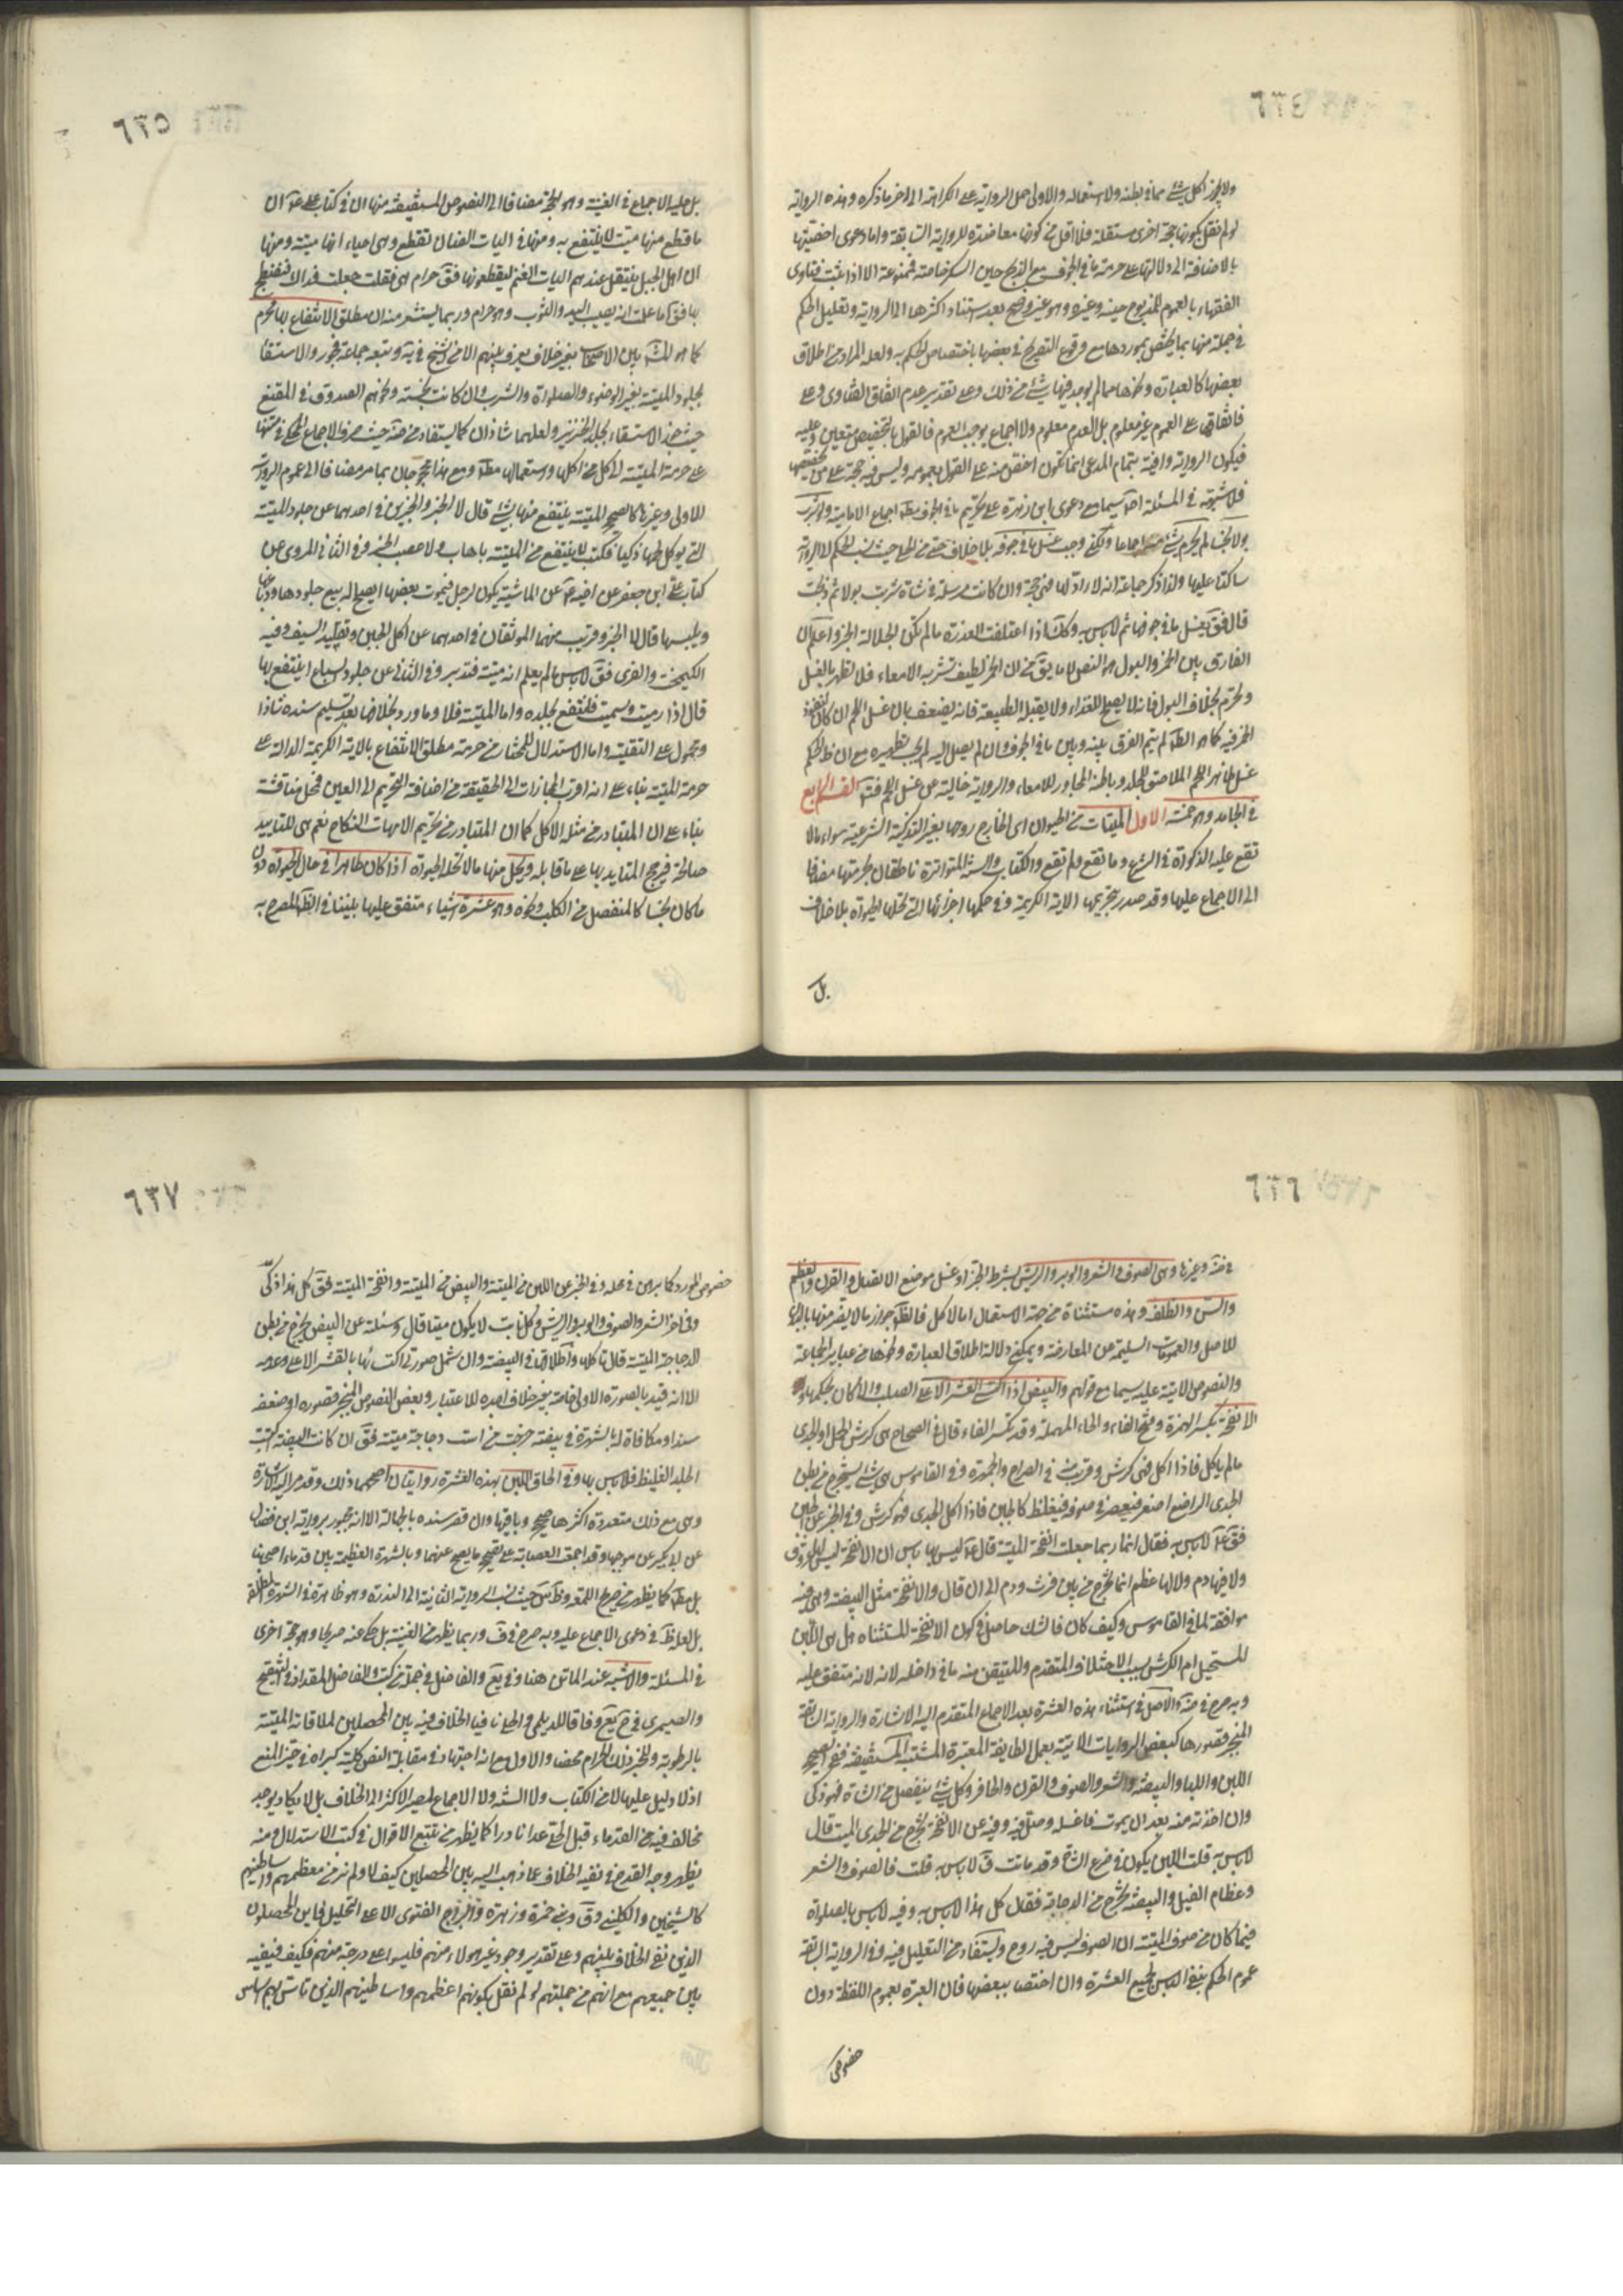 ٦٣٤
ولا يجوز اكل شئ مما في بطنه ولا استعماله والاولى حمل الرواية على الكراهة الى اخر ما ذكره وهذه الرواية
لو لم نقل بكونها حجة اخرى مستقلة فلا اقل من كونها معاضدة للرواية السابقة واما دعوى اخصيتها
بالاضافة الى دلالتها على حرمة ما في الجوف مع الذبح حين السكر خاصة فممنوعة الا اذا ثبت فتاوى
الفقهاء بالعموم للمذبوح حينه وغيره وهو غير واضح بعد استناد اكثرها الى الرواية وتعليل الحكم
في جملة منها بما يختص بموردها مع وقوع التصريح في بعضها باختصاص الحكم به ولعله المراد من اطلاق
بعضها كالعبارة ونحوها مما لم يوجد فيها شئ من ذلك وعلى تقدير عدم اتفاق الفتاوى وعلى
فاتفاقهم على العموم غير معلوم بل العدم معلوم ولا اجماع يوجب العموم فالقول بالتخصيص متعين وعليه
فيكون الرواية وافية بتمام المدعى انما تكون اخص منه على القول بعمومه وليس فيه حجة على من يخصصها
فلا شبهة في المسئلة سيما مع دعوى ابن زهرة على تحريم ما في الجوف اجماع الامامية ولو شرب
بولا نجسا لم يحرم شئ اجماعا ولكن وجب غسل ما في جوفه بلا خلاف حتى من الحلى حيث نسب الحكم الى الرواية
ساكتا عليها ولذا ذكر جماعة انه لا راد لها فهى حجة وان كانت مرسلة في شاة شربت بولا ثم ذبحت
قال فق يغسل ما في جوفها ثم لا باس به وكك اذا اعتلفت العذرة ما لم تكن الجلالة الخبر واعلم ان
الفارق بين الخمر والبول هو النص لا ما يق من ان الخمر لطيف تشربه الامعاء فلا تطهر بالغسل
وتحرم بخلاف البول فانه لا يصلح للغذاء ولا يقبله الطبيعة فانه يضعف بان غسل اللحم ان كان لنفوذ
الخمر فيه كما هو الظ لم يتم الفرق بينه وبين ما في الجوف وان لم يصل اليه لم يجب تطهيره مع ان ظ الحكم
غسل ظاهر اللحم الملاصق للجلد وباطنه المجاور للامعاء والرواية خالية عن غسل اللحم فت القسم الرابع
في الجامد وهو خمسة الاول الميتات من الحيوان اى الخارج روحها بغير التذكية الشرعية سواء ما لا
تقع عليه الذكوة في الشرع وما تقع ولم تقع والكتاب والسنة المتواترة ناطقان بحرمتها مضافا
الى الاجماع عليها وقد صدر بتحريمها الاية الكريمة وفي حكمها اجزائها التي تحلها الحيوة بلا خلاف
بل
٦٣٥
بل عليه الاجماع في الغنية وهو الحجة مضافا الى النصوص المستفيضة منها ان في كتاب على ع ان
ما قطع منها ميت لا ينتفع به ومنها في اليات الضان تقطع وهى احياء انها ميتة ومنها
ان اهل الجبل يثقل عندهم اليات الغنم ليقطعونها فق حرام هى فقلت جعلت فداك فنصطبح
بها فق اما علمت انه يصيب اليد والثوب وهو حرام وربما يستشعر منه ان مطلق الانتفاع بها محرم
كما هو المش بين الاصحاب بغير خلاف يعرف بينهم الا من الشيخ في ية وتبعه جماعة فجوزوا الاستقاء
بجلود الميتة بغير الوضوء والصلوة والشرب وان كانت نجسة ونحوهم الصدوق في المقنع
حيث جوز الاستقاء بجلد الخنزير ولعلهما شاذان كما يستفاد من ضة حيث صرف الاجماع المحكى في متنها
على حرمة الميتة الى كل من اكلها واستعمالها مط ومع هذا محجوجان بما مر مضافا الى عموم الرواية
الاولى وغيرها كالصحيح الميتة ينتفع منها بشئ قال لا الخبر والخبرين في احدهما عن جلود الميتة
التى يؤكل لحمها ذكيا فكتب لا ينتفع من الميتة باهاب ولا عصب الخبر وفي الثاني المروى عن
كتاب على ابن جعفر عن اخيه ع عن الماشية يكون لرجل فيموت بعضها ايصلح له بيع جلودها ودباغها
ويلبسها قال لا الخبر وقريب منهما الموثقان في احدهما عن اكل الجبن وتقليد السيف وفيه
الكيمخت والفرى فق لا باس ما لم يعلم انه ميتة فتدبر وفي الثاني عن جلود السباع ينتفع بها
قال اذا رميت وسميت فانتفع بجلده واما الميتة فلا وما ورد بخلافها بعد تسليم سنده شاذا
ومحمول على التقية واما الاستدلال للمختار من حرمة مطلق الانتفاع بالاية الكريمة الدالة على
حرمة الميتة بناء على انه اقرب المجازات الى الحقيقة من اضافة التحريم الى العين فمحل مناقشة
بناء على ان المتبادر من مثله الاكل كما ان المتبادر من تحريم الامهات النكاح نعم هى للتاييد
صالحة فيرجح المتايد بها على ما قابله ويحل منها ما لا تحله الحيوة اذا كان طاهرا في حال الحيوة دون
ما كان نجسا كالمنفصل من الكلب ونحوه وهو عشرة اشياء متفق عليها بيننا في الظ المصرح به
٦٣٦
في ضة وغيرها وهى الصوف والشعر والوبر والريش بشرط الجز او غسل موضع الاتصال والقرن والعظم
والسن والظلف وهذه مستثناة من جهة الاستعمال اما الاكل فالظ جواز ما لا يضر منها بالبدن
للاصل والعمومات السليمة عن المعارضة ويمكن دلالة اطلاق العبارة ونحوها من عباير الجماعة
والنصوص الاتية عليه سيما مع قولهم والبيض اذا اكتسى القشر الاعلى الصلب والا كان بحكمها و
الانفحة بكسر الهمزة وفتح الفاء والحاء المهملة وقد تكسر الفاء قال في الصحاح هى كرش الحمل او الجدى
ما لم ياكل فاذا اكل فهى كرش وقريب منه في الصراح والجمهرة وفي القاموس هى شئ يستخرج من بطن
الجدى الراضع اصفر فيعصر في صوفة فيغلظ كالجبن فاذا اكل الجدى فهو كرش وفي الخبر عن الجبن
فق ع لا باس به فقال انه ربما جعلت انفحة الميتة قال ع ليس بها باس ان الانفحة ليس لها عروق
ولا فيها دم ولا لها عظم انما تخرج من بين فرث ودم الى ان قال والانفحة مثل البيضة وهى منه
موافقة لما في القاموس وكيف كان فالشك حاصل في كون الانفحة المستثناة هل هى اللبن
المستحيل ام الكرش بسبب الاختلاف المتقدم والمتيقن منه ما في داخله لانه متفق عليه
وبه صرح في ضة والاصل في استثناء هذه العشرة بعد الاجماع المتقدم اليه الاشارة والرواية السابقة
المنجبر قصورها كبعض الروايات الاتية بعمل الطايفة المعتبرة المستفيضة ففي الصحيح
اللبن واللباء والبيضة والشعر والصوف والقرن والحافر وكل شئ ينفصل من الشاة فهو ذكى
وان اخذته منه بعد ان يموت فاغسله وصل فيه وفيه عن الانفحة تخرج من الجدى الميت قال
لا باس به قلت اللبن يكون في ضرع الشاة وقد ماتت ق لا باس به قلت فالصوف والشعر
وعظام الفيل والبيضة تخرج من الدجاجة فقال كل هذا لا باس به وفيه لا باس بالصلوة
فيما كان من صوف الميتة ان الصوف ليس فيه روح ويستفاد من التعليل فيه وفي الرواية السابقة
عموم الحكم بنفي الباس لجميع العشرة وان اختص ببعضها فان العبرة بعموم اللفظ دون
خصوص
٦٣٧
خصوص المورد كما برهن في محله وفي الخبر عن اللبن من الميتة والبيض من الميتة وانفحة الميتة فق كل هذا ذكى
وفي اخر الشعر والصوف والوبر والريش وكل نابت لا يكون ميتا قال وسئلته عن البيض يخرج من بطن
الدجاجة الميتة قال تاكلها واطلاقها في البيضة وان شمل صورتى اكتسائها بالقشر الاعلى وعدمه
الا انه قيد بالصورة الاولى خاصة بغير خلاف اجده للاعتبار وبعض النصوص المنجبر قصوره او ضعفه
سندا ومكافاة له بالشهرة في بيضة خرجت من است دجاجة ميتة فق ان كانت البيضة اكتست
الجلد الغليظ فلا باس بها وفي الحاق اللبن بهذه العشرة روايتان اصحهما ذلك وقد مر اليه الاشارة
وهى مع ذلك متعددة اكثرها صحيح وباقيها وان قصر سنده بالجهالة الا انه مجبور برواية ابن فضال
عن ابن بكير عن موجبها وقد اجمعت العصابة على تصحيح ما يصح عنهما وبالشهرة العظيمة بين قدماء اصحابنا
بل مط كما يظهر من صريح اللمعة وظ س حيث نسب الرواية الثانية الى الندرة وهو ظاهر في الشهرة المطلقة
بل لعله ظ في دعوى الاجماع عليه وبه صرح في ف وربما يظهر من الغنية بل حكى عنه صريحا وهو حجة اخرى
في المسئلة والاشبه عند الماتن هنا وفي يع والفاضل في جملة من كتبه والفاضل المقداد في التنقيح
والصيمرى في شرح يع وفاقا للديلمى والحلى نافيا الخلاف فيه بين المحصلين لملاقاته الميتة
بالرطوبة وللخبر ذلك الحرام محضا والاول مع انه اجتهاد في مقابلة النص كلية كبراه في حيز المنع
اذ لا دليل عليها لا من الكتاب ولا السنة ولا الاجماع لمصير الاكثر الى الخلاف بل لا يكاد يوجد
مخالف فيه من القدماء قبل الحلى عدا نادرا كما يظهر من تتبع الاقوال في كتب الاستدلال ومنه
يظهر وجه القدح في نفيه الخلاف عما ذهب اليه بين المحصلين كيف لا ولم نر من معظمهم واساطينهم
كالشيخين والكلينى وق وبنى حمزة وزهرة والبراج الفتوى الا على التحليل فاين المحصلون
الذين نفى الخلاف بينهم وعلى تقدير وجود غير هولاء منهم فليسوا على درجة منهم فكيف فينفيه
بين جميعهم مع انهم من جملتهم لو لم نقل بكونهم اعظمهم واساطينهم الذين تاسس بهم اساس